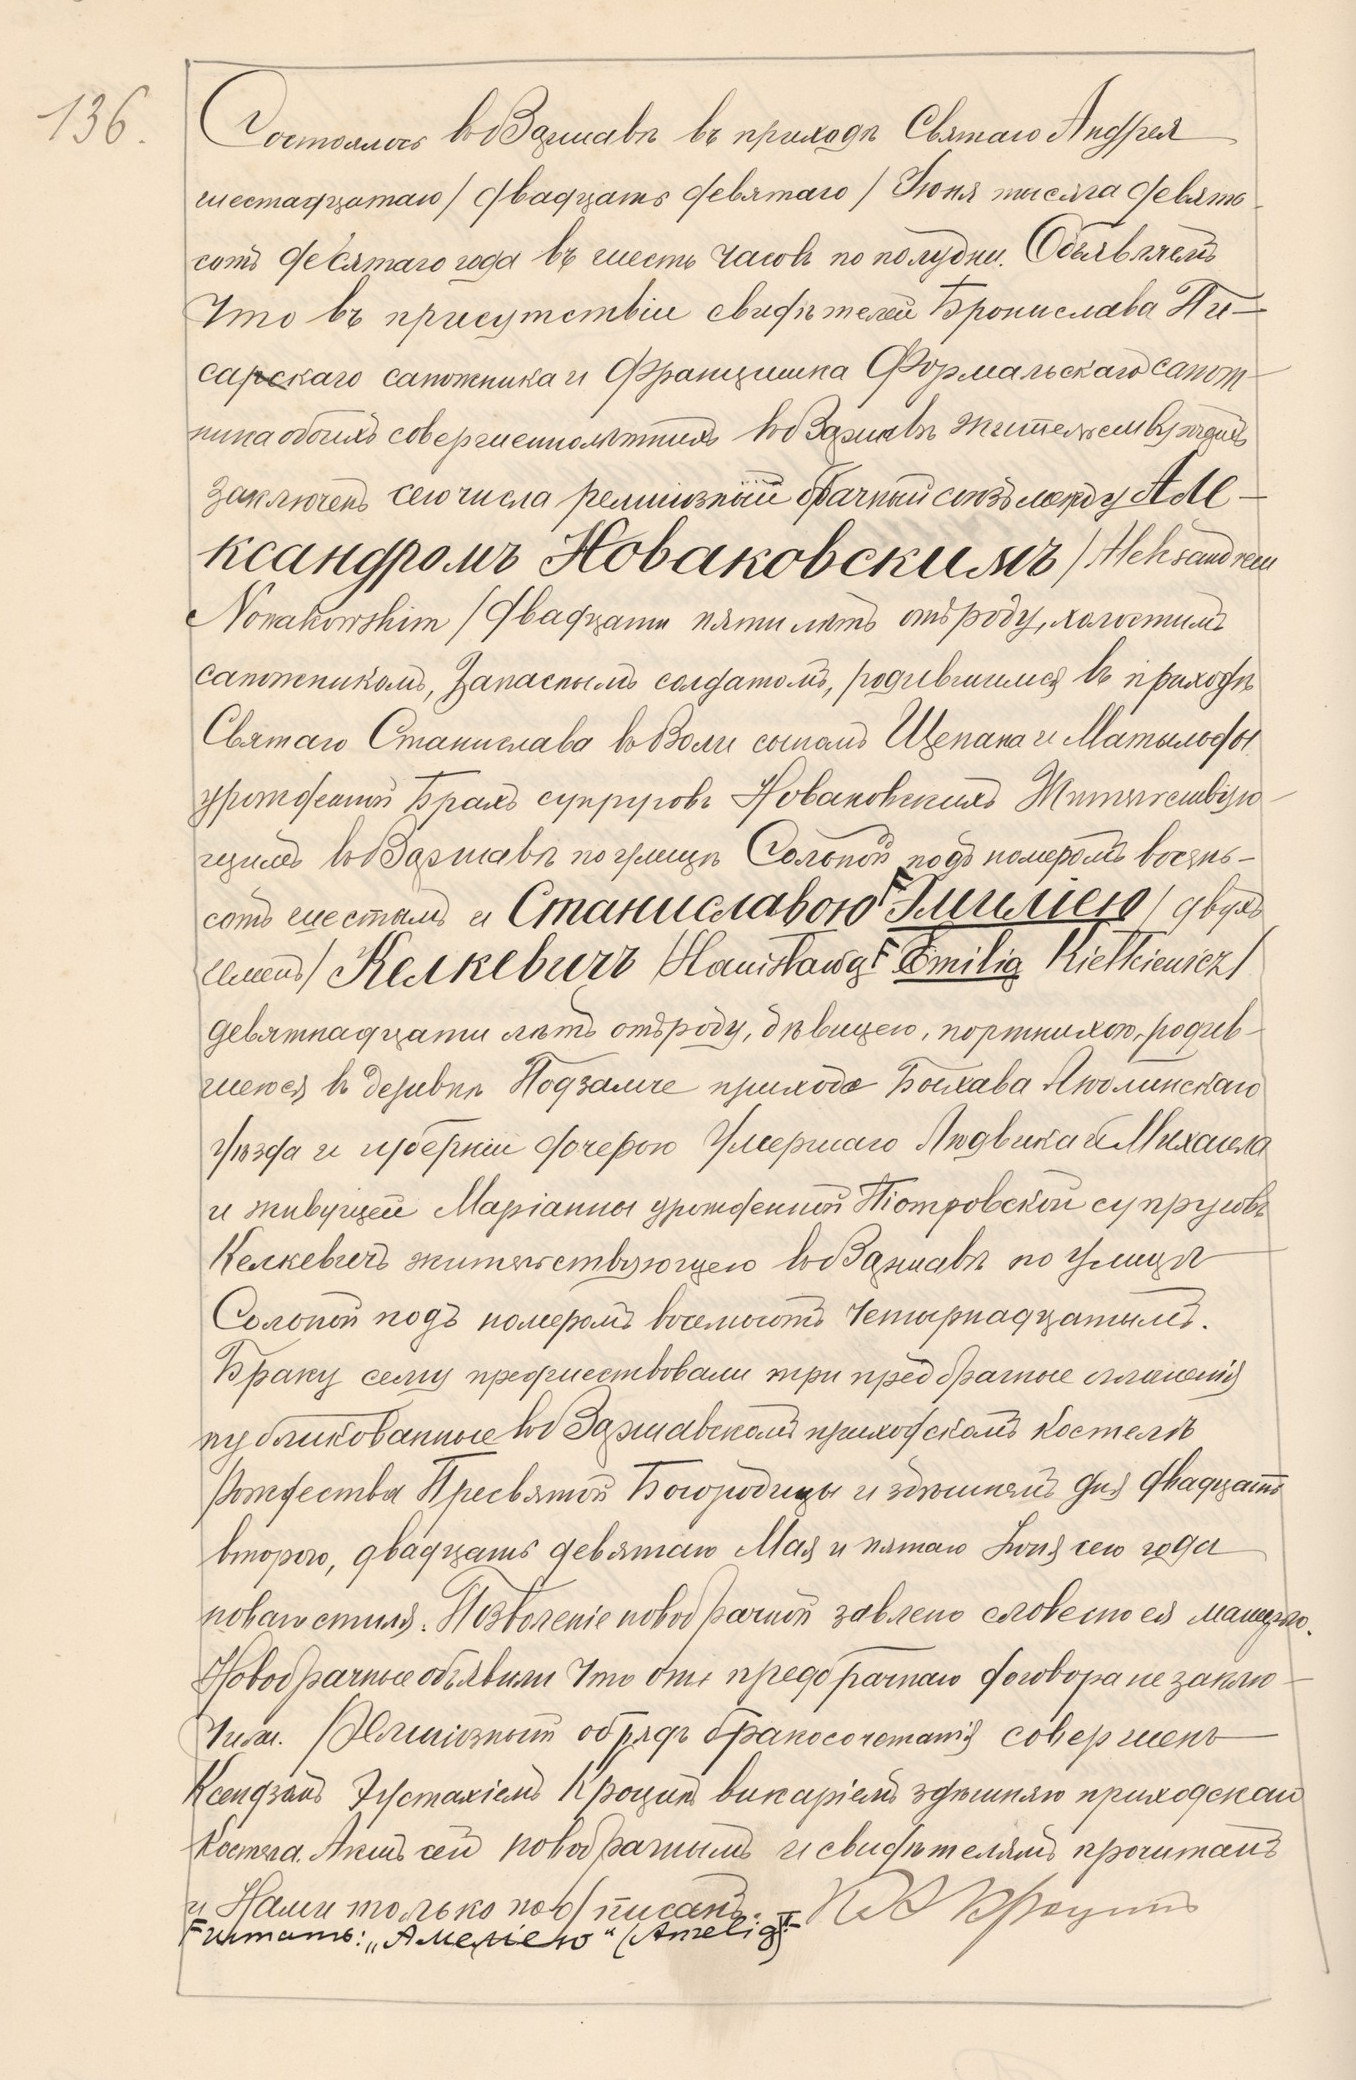 136.
Состоялось въ Варшавѣ въ приходѣ Святаго Андрея
шестнадцатаго / двадцать девятаго / Іюня тысяча девять-
сотъ десятаго года въ шесть часовъ по полудни. Объявляемъ
что въ присутствіи свидѣтелей Бронислава Пи-
сарскаго сапожника и Францишка Формальскаго сапож-
ника обоихъ совершеннолѣтнихъ въ Варшавѣ жительствующихъ
заключенъ сего числа религіозный брачный союзъ между Але-
ксандромъ Новаковскимъ / Aleksandrem
Nowakowskim / двадцати пяти лѣтъ отъ роду, холостымъ
сапожникомъ, запаснымъ солдатомъ, родившимся въ приходѣ
Святаго Станислава въ Воли сыномъ Щепана и Матыльды
урожденной Брахъ супруговъ Новаковскихъ жительствую-
щимъ въ Варшавѣ по улицѣ Солоной подъ номеромъ восемь-
сотъ шестымъ и Станиславою F Эмиліею / двухъ
именъ / Келкевичъ / Stanisławą F Emilią Kiełkiewicz /
девятнадцати лѣтъ отъ роду, дѣвицею, портнихою, родив-
шеюся въ деревнѣ Подзамче прихода Быхава Люблинскаго
уѣзда и губерніи дочерью умершаго Людвика и Михаила
и живущей Маріанны урожденной Піотровской супруговъ
Келкевичъ жительствующею въ Варшавѣ по улицѣ
Солоной подъ номеромъ восемьсотъ четырнадцатымъ.
Браку сему предшествовали три предбрачные оглашенія
публикованные въ Варшавскомъ приходскомъ костелѣ
Рождества Пресвятой Богородицы и здѣшнемъ дня двадцать
второго, двадцать девятаго Мая и пятаго Іюня сего года
новаго стиля. Позволеніе новобрачной заявлено словесно ея матерью.
Новобрачные объявили что они предбрачнаго договора не заклю-
чили. Религіозный обрядъ бракосочетанія совершенъ
Ксендзомъ Эустахіемъ викаріемъ здѣшняго приходскаго
костела. Актъ сей новобрачнымъ и свидѣтелямъ прочитанъ
и Нами только подписанъ.
F читать: „Амеліею" (Amelią) F